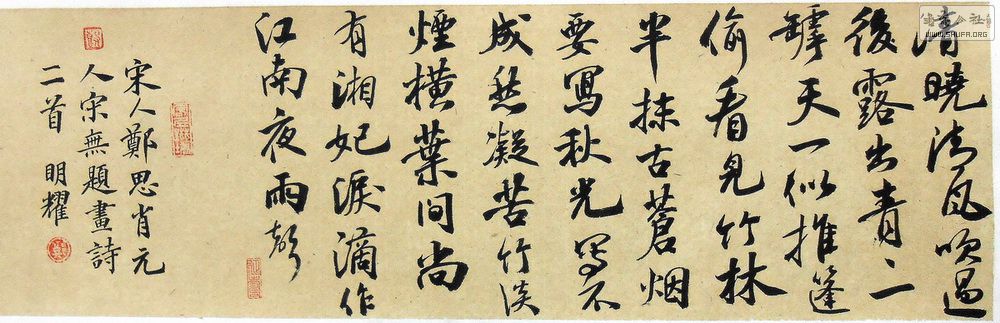 清曉清风吹過
後露出青々
罅天一似推篷
偷看見竹林
半抹古蒼烟
要寫秋光寫不
成愁凝苦竹淡
煙横葉間尚
有湘妃淚滴作
江南夜雨聲
宋人鄭思肖元
人宋無題畫詩
二首 明耀
WWW.SHUFA.ORG